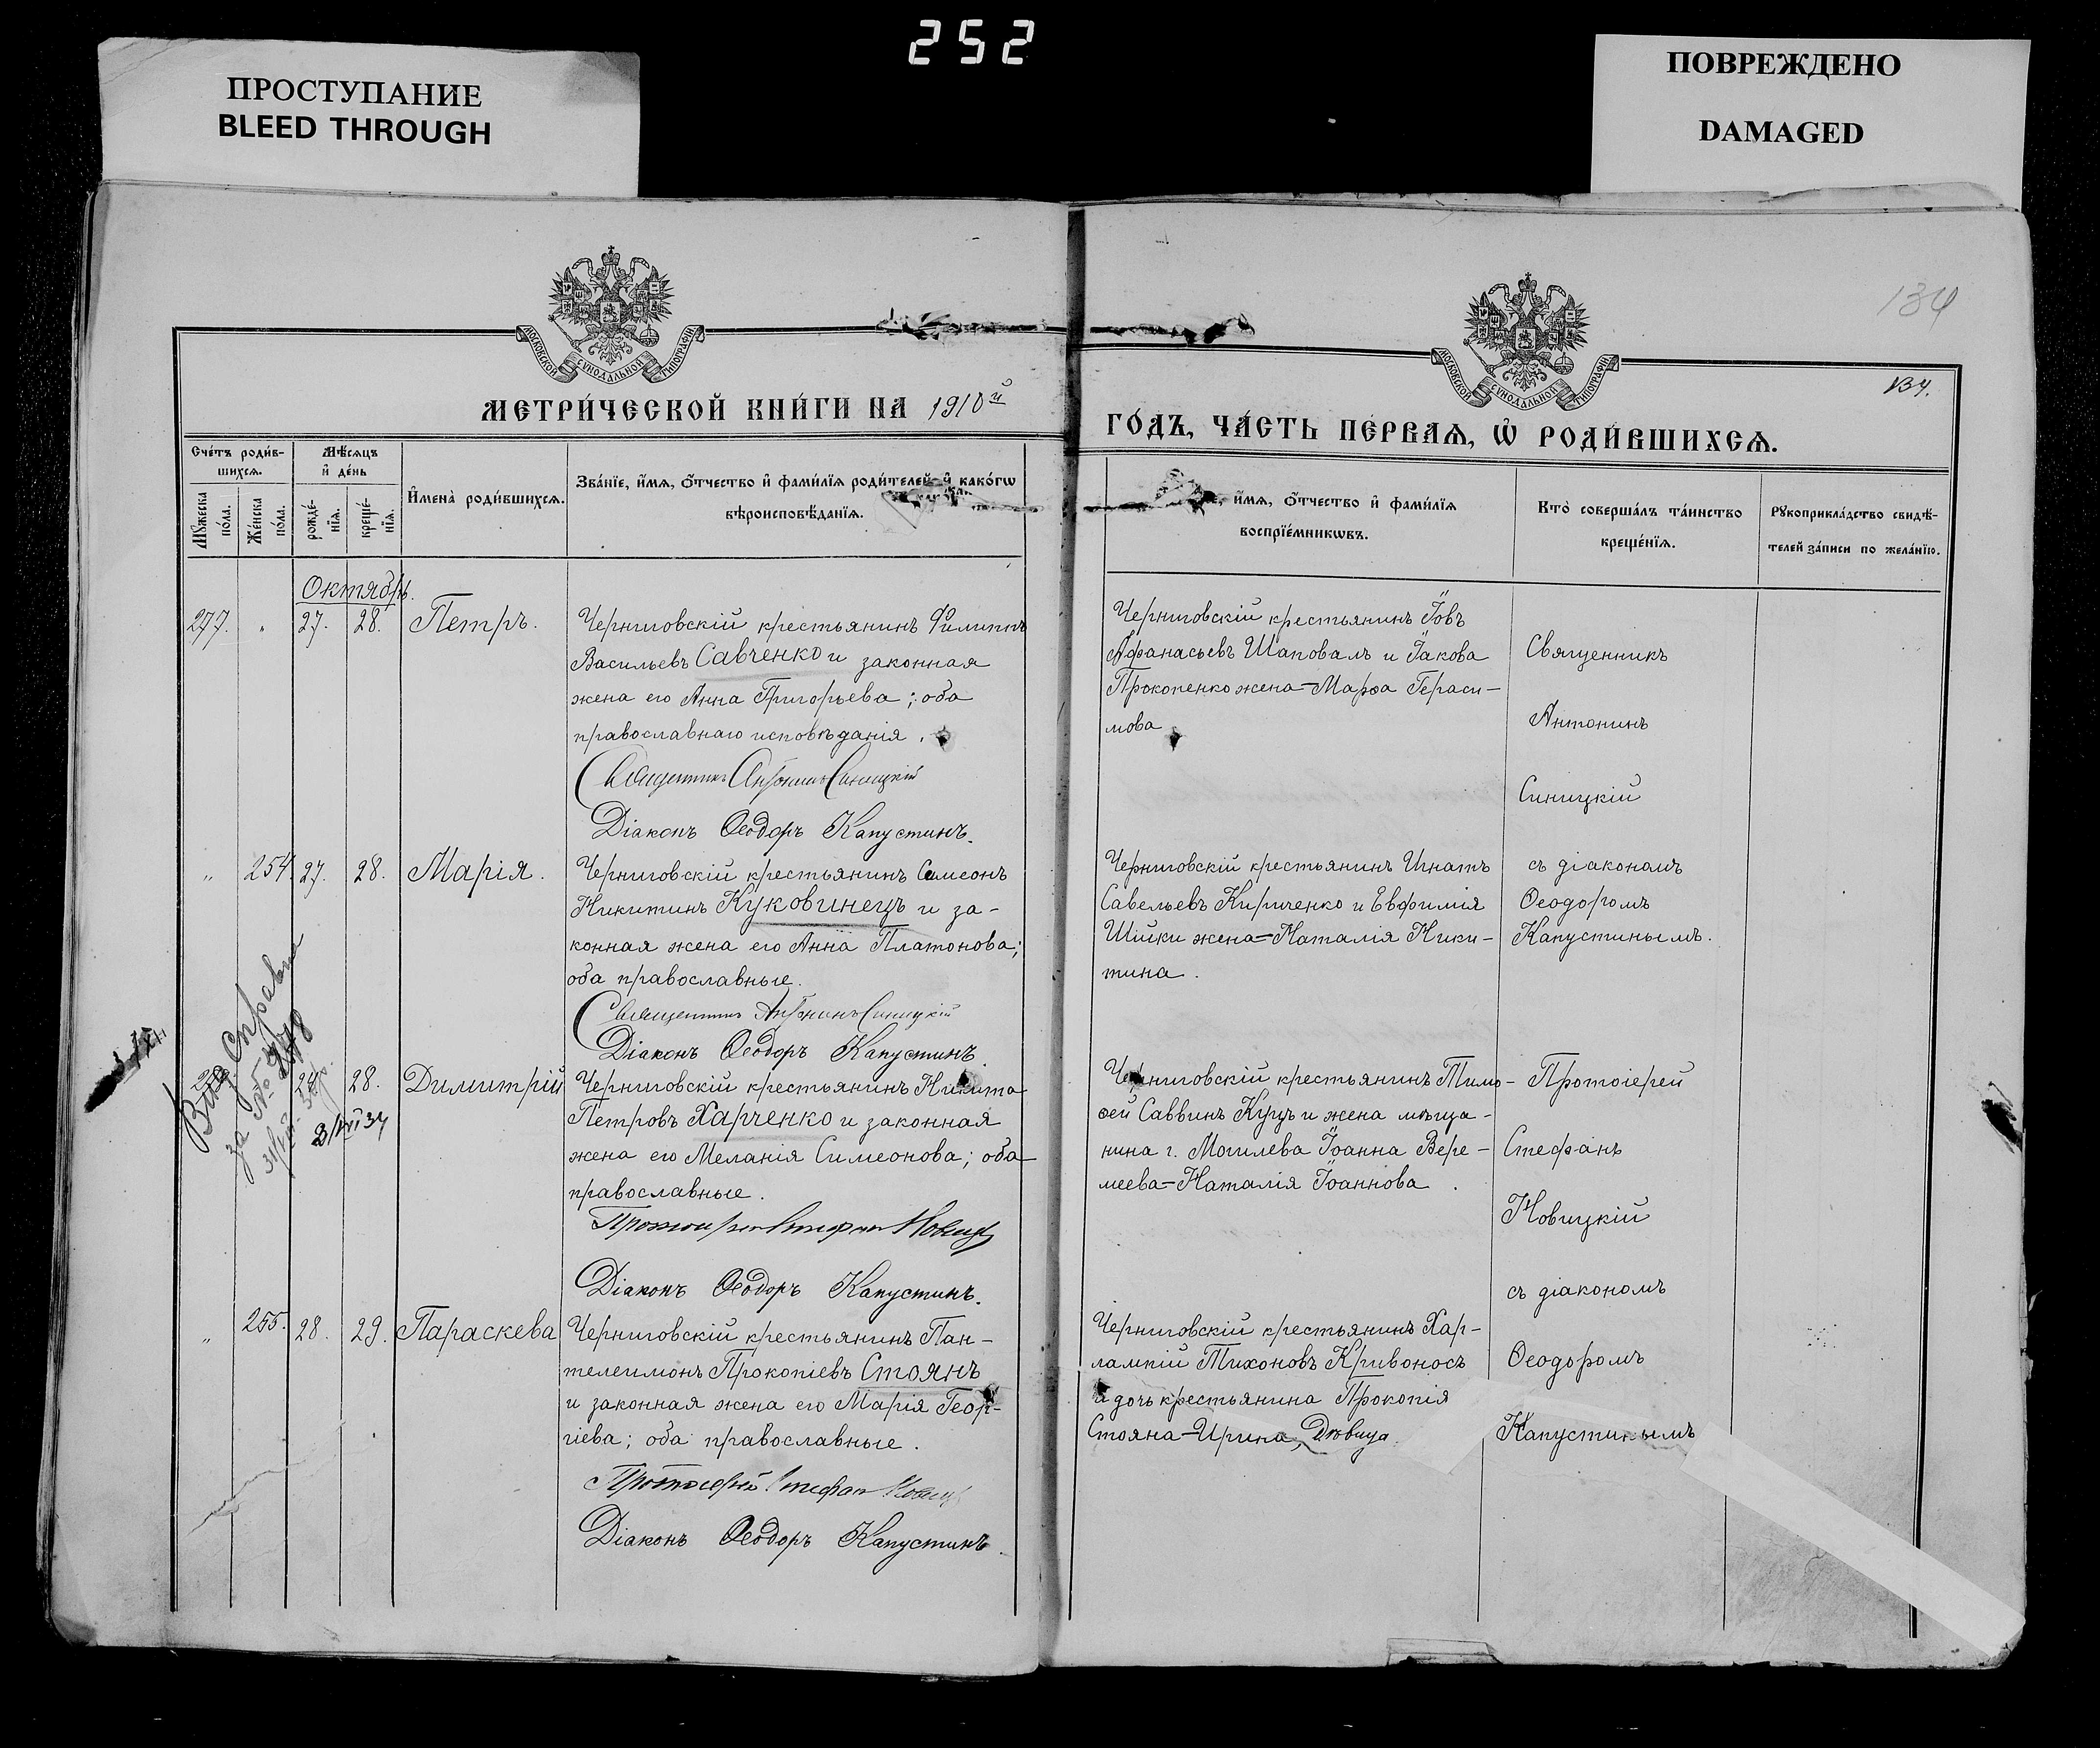 252
ПРОСТУПАНИЕ
BLEED THROUGH
ПОВРЕЖДЕНО
DAMAGED
134
134.
МОСКОВСКОЙ СѴНОДАЛЬНОЙ ТИПОГРАФІИ
МОСКОВСКОЙ СѴНОДАЛЬНОЙ ТИПОГРАФІИ
МЕТРИ́ЧЕСКОЙ КНИ́ГИ НА 1910й
ГО́ДЪ, ЧА́СТЬ ПЕ́РВАѦ, Ѡ҆ РОДИ́ВШИХСѦ.
Сче́тъ роди́в-
шихсѧ.
Мꙋ́жеска по́ла.
Же́нска по́ла.
Мѣ́сѧцъ
и҆ де́нь
рожде́-
нїѧ.
креще́-
нїѧ.
И҆мена̀ роди́вшихсѧ.
Зва́нїе, и҆́мѧ, о҆́тчество и҆ фами́лїѧ роди́телей, и҆ како́гѡ
вѣроисповѣ́данїѧ.
и҆́мѧ, о҆́тчество и҆ фами́лїѧ
воспрїе́мникѡвъ.
Кто̀ соверша́лъ та́инство
креще́нїѧ.
Рꙋкоприкла́дство свидѣ́-
телей за́писи по жела́нїю.
Октябрь.
277. „ 27. 28. Петръ.
Черниговскій крестьянинъ Филиппъ
Васильевъ Савченко и законная
жена его Анна Григорьева; оба
православнаго исповѣданія.
Священникъ Антонинъ Синицкій
Діаконъ Ѳеодоръ Капустинъ.
Черниговскій крестьянинъ Іовъ
Афанасьевъ Шаповалъ и Іакова
Прокопенко жена=Марѳа Гераси-
мова
Священникъ
Антонинъ
Синицкій
съ діакономъ
Ѳеодоромъ
Капустинымъ.
„ 254. 27. 28. Марія.
Черниговскій крестьянинъ Симеонъ
Никитинъ Куковинецъ и за-
конная жена его Анна Платонова;
оба православные.
Священникъ Антонинъ Синицкій
Діаконъ Ѳеодоръ Капустинъ.
Черниговскій крестьянинъ Игнатъ
Савельевъ Кириченко и Евфимія
Шійки жена=Наталія Ники-
тина.
Справки
за №
28. Димитрій
Черниговскій крестьянинъ Никита
Петровъ Харченко и законная
жена его Меланія Симеонова; оба
православные.
Протоіерей Стефанъ Новицкій
Діаконъ Ѳеодоръ Капустинъ.
Черниговскій крестьянинъ Тимо-
ѳей Саввинъ Куцъ и жена мѣща-
нина г. Могилева Іоанна Вере-
меева=Наталія Іоаннова.
Протоіерей
Стефанъ
Новицкій
съ діакономъ
Ѳеодоромъ
Капустинымъ
„ 255. 28. 29. Параскева
Черниговскій крестьянинъ Пан-
телеимонъ Прокопіевъ Стоянъ
и законная жена его Марія Геор-
гіева; оба православные.
Протоіерей Стефанъ Новицкій
Діаконъ Ѳеодоръ Капустинъ.
Черниговскій крестьянинъ Хар-
лампій Тихоновъ Кривоносъ
и дочь крестьянина Прокопія
Стояна=Ирина, Дѣвица.